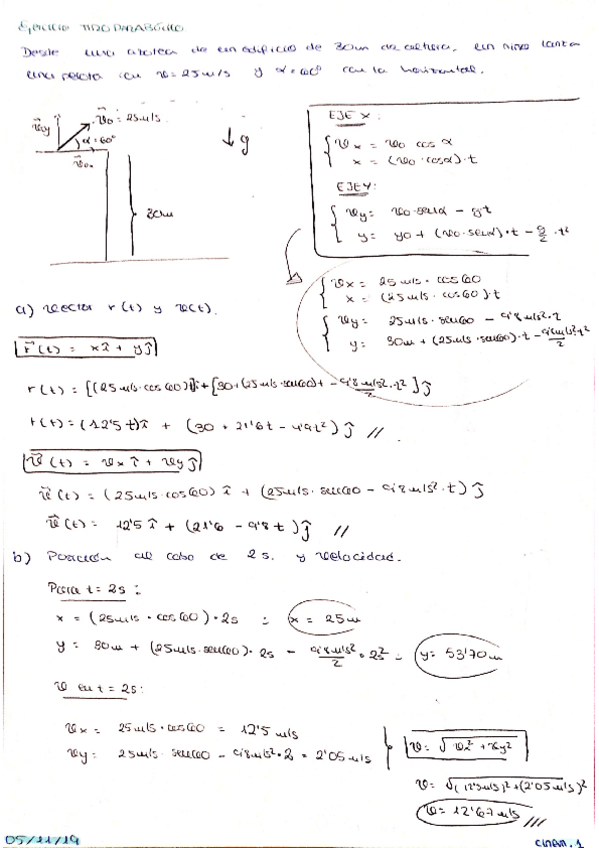 Ejercicio TIRO PARABÓLICO
Desde una azotea de un edificio de 30m de altura, un niño lanza
una pelota con v=25m/s y α=60° con la horizontal.
v⃗oy v⃗o = 25m/s
α=60°
v⃗ox
↓g
30m
EJE X:
vx = vo cos α
x = (vo·cosα)·t
EJE Y:
vy = vo·senα - gt
y = yo + (vo·senα)·t - g/2·t²
vx = 25m/s·cos60
x = (25m/s·cos60)·t
vy = 25m/s·sen60 - 9'8m/s²·t
y = 30m + (25m/s·sen60)·t - 9'8m/s²·t²/2
a) Vector r(t) y v(t).
r⃗(t) = xî + yĵ
r(t) = [(25m/s·cos60)t]î + [30+(25m/s·sen60)t - 9'8m/s²/2·t²]ĵ
r(t) = (12'5t)î + (30 + 21'6t - 4'9t²)ĵ //
v⃗(t) = vxî + vyĵ
v⃗(t) = (25m/s·cos60)î + (25m/s·sen60 - 9'8m/s²·t)ĵ
v⃗(t) = 12'5î + (21'6 - 9'8t)ĵ //
b) Posición al cabo de 2s. y velocidad.
Para t = 2s:
x = (25m/s·cos60)·2s = x = 25m
y = 30m + (25m/s·sen60)·2s - 9'8m/s²/2·2s² = y = 53'70m
v en t = 2s:
vx = 25m/s·cos60 = 12'5m/s
vy = 25m/s·sen60 - 9'8m/s²·2 = 2'05m/s
v = √vx²+vy²
v = √(12'5m/s)²+(2'05m/s)²
v = 12'67m/s ///
05/11/19